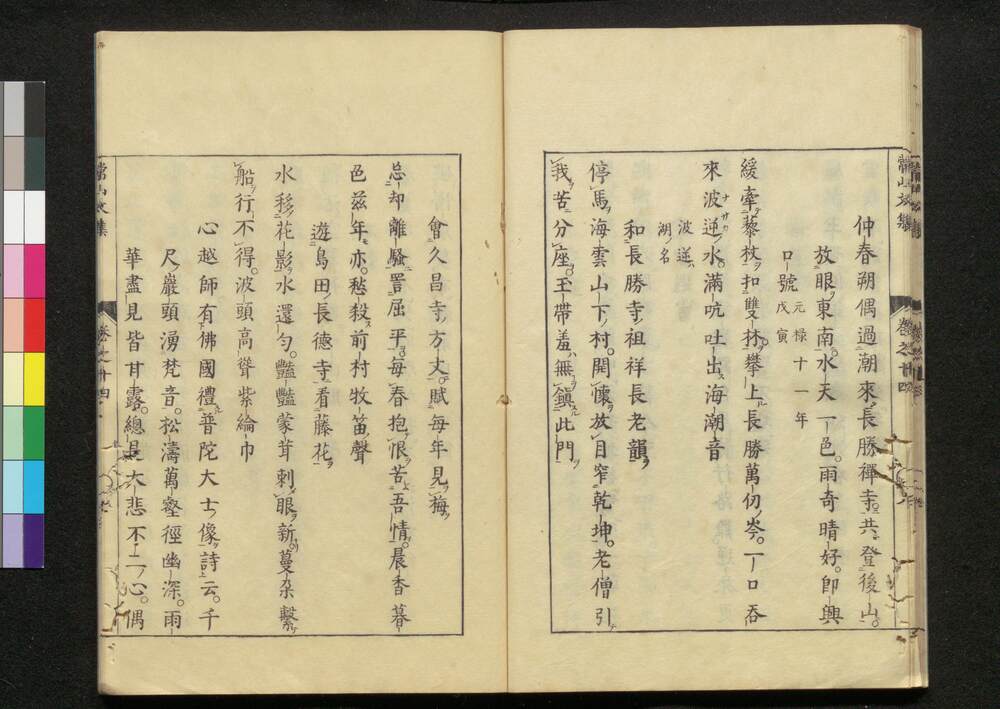 仲春朔偶過潮來長勝禪寺共登後山
放眼東南水天一色雨奇晴好卽興
口號 元祿十一年戊寅
緩牽藜杖扣雙林攀上長勝萬仞岑一口吞
來波逆水滿吭吐出海潮音
波逆湖名
和長勝寺祖祥長老韻
停馬海雲山下村開懷放目窄乾坤老僧引
我苦分座玉帶羞無鎭此門
會久昌寺方丈賦每年見梅
忘却離騷詈屈平每春抱恨苦吾情晨香暮
色茲年亦愁殺前村牧笛聲
遊島田長德寺看藤花
水移花影水還勻豔豔蒙茸刺眼新蔓朶繫
船行不得波頭高聳紫綸巾
心越師有佛國禮普陀大士像詩云千
尺巖頭湧梵音松濤萬壑徑幽深雨
華盡見皆甘露總是大悲不二心偶
常山文集
卷之廿四